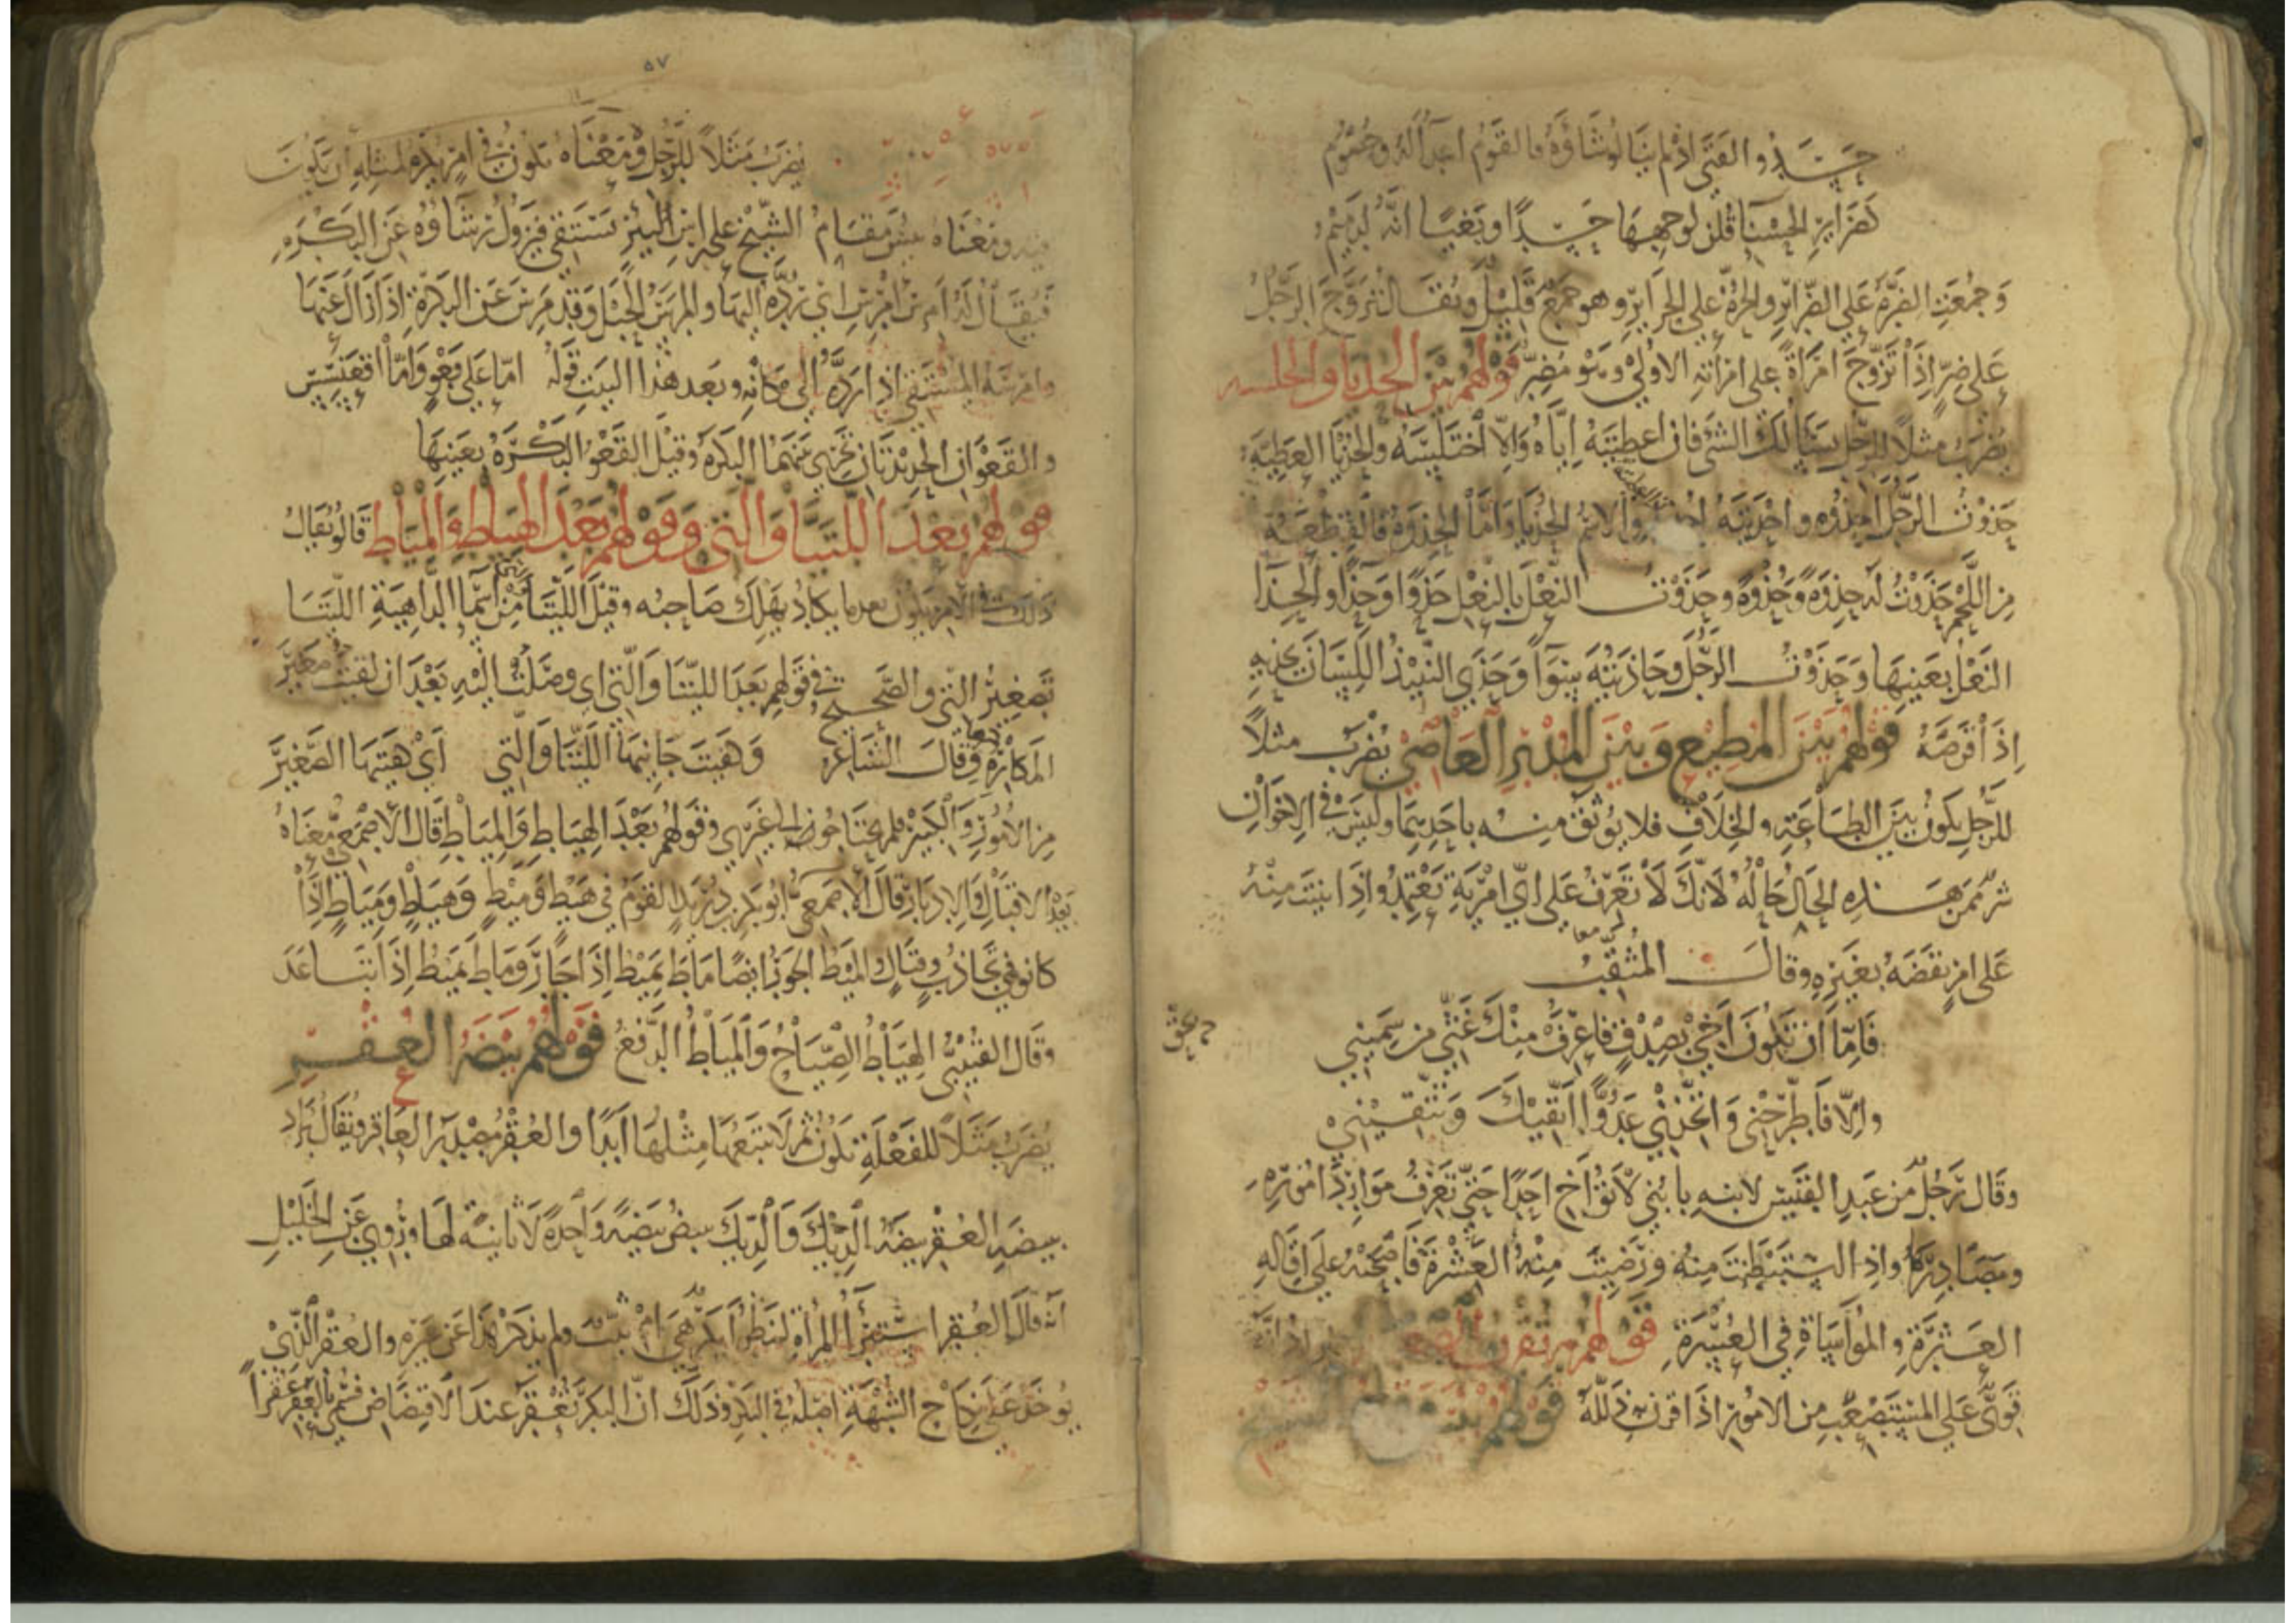 حسدوا الفتى اذ لم ينالوا شاؤه فالقوم اعداء له وخصوم
كضراير الحسنا قلن لوجهها حسدًا وبغيًا انه لدميم
وجمعت الضرة على الضراير والحرة على الحراير وهو جمع قليل ويقال تزوج الرجل
على ضر اذا تزوج امراة على امراته الاولى وهو مضر قولهم بين الحذيا والخلسه
يضرب مثلا للرجل يسالك الشي فان اعطيته اياه والا اختلسه والحذيا العطية
حذوت الرجل احذوه واحذيته والاسم الحذيا واما الحذوة فالقطعة
من اللحم حذوت له حذوة وحذوة وحذوت النعل بالنعل حذوا وحذا والحذا
النعل بعينها وحذوت الرجل وحاذيته سوا وحذى النبيذ اللسان يحذيه
اذا قرصه قولهم بين المطيع وبين المدبر العاصي يضرب مثلا
للرجل يكون بين الطاعة والخلاف فلا يوثق منه باحديهما وليس في الاخوان
شر ممن هذه الحال حاله لانك لا تعرف على اي امرية تعتمد واذا بنيت منه
على امر نقضه بغيره وقال المثقب
فاما ان تكون اخي بصدق فاعرف منك غثي من سميني
والا فاطرحني واتخذني عدوا اتقيك وتتقيني
وقال رجل من عبد القيس لابنه يا بني لا تؤاخ احدا حتى تعرف موارد اموره
ومصادرها واذا استبطنت منه ورضيت منه العشرة فاصحبه على اقاله
العثرة والمواساة في العسرة قولهم
قوي على المستصعب من الامور اذا قرن به ذلله قولهم الشيخ
٥٧
يضرب مثلا للرجل ومعناه تكون في امر يكره لمثله ان يكون
فيه ومعناه بئس مقام الشيخ على اين البئر يستقي فيزول رشاؤه عن البكره
فيقال له امرس امرس اي رده اليها والمرس الحبل وقد مرس عن البكرة اذا زال عنها
وامرسه المستقي اذا رده الى مكانه وبعد هذا البيت قوله اما على قعو واما اقعنسس
والقعوان الحديدتان تجري بينهما البكره وقيل القعو البكره بعينها
قولهم بعد اللتيا والتي وقولهم بعد الهياط والمياط قالو يقال
ذلك في الامر يكون بعد ما يكاد يهلك صاحبه وقيل اللتيا من اسما الداهية اللتيا
تصغير التي والصحيح في قولهم بعد اللتيا والتي اي وصلت اليه بعد ان لقيت صغير
المكاره وقال الشاعر وهيت جانيها اللتيا والتي اي هيتها الصغير
من الامور والكبير فلم يحتاجو الى غيري وقولهم بعد الهياط والمياط قال الاصمعي معناه
بعد الاقبال والادبار قال الاصمعي ابو بكر بن دريد القوم في هيط وميط وهياط ومياط اذا
كانو في تجاذب وقتال والميط الجور ايضا ماط يميط اذا جار وماط يميط اذا تباعد
وقال القتيبي الهياط الصياح والمياط الدفع قولهم بيضه العقر
يضرب مثلا للفعلة تكون ثم لا تتبعها مثلها ابدا والعقر مصدر العاقر ويقال يراد
ببيضه العقر بيضه الديك والديك يبيض بيضه واحدة لا ثانية لها وروي عن الخليل
انه قال العقر استبرا المراة لينظر ابكر هي ام ثيب ولم يذكر هذا عن غيره والعقر الذي
يوخذ على نكاح الشبهة اصله في البكر وذلك ان البكر تعقر عند الاقتضاض فسمي العقر عقرا